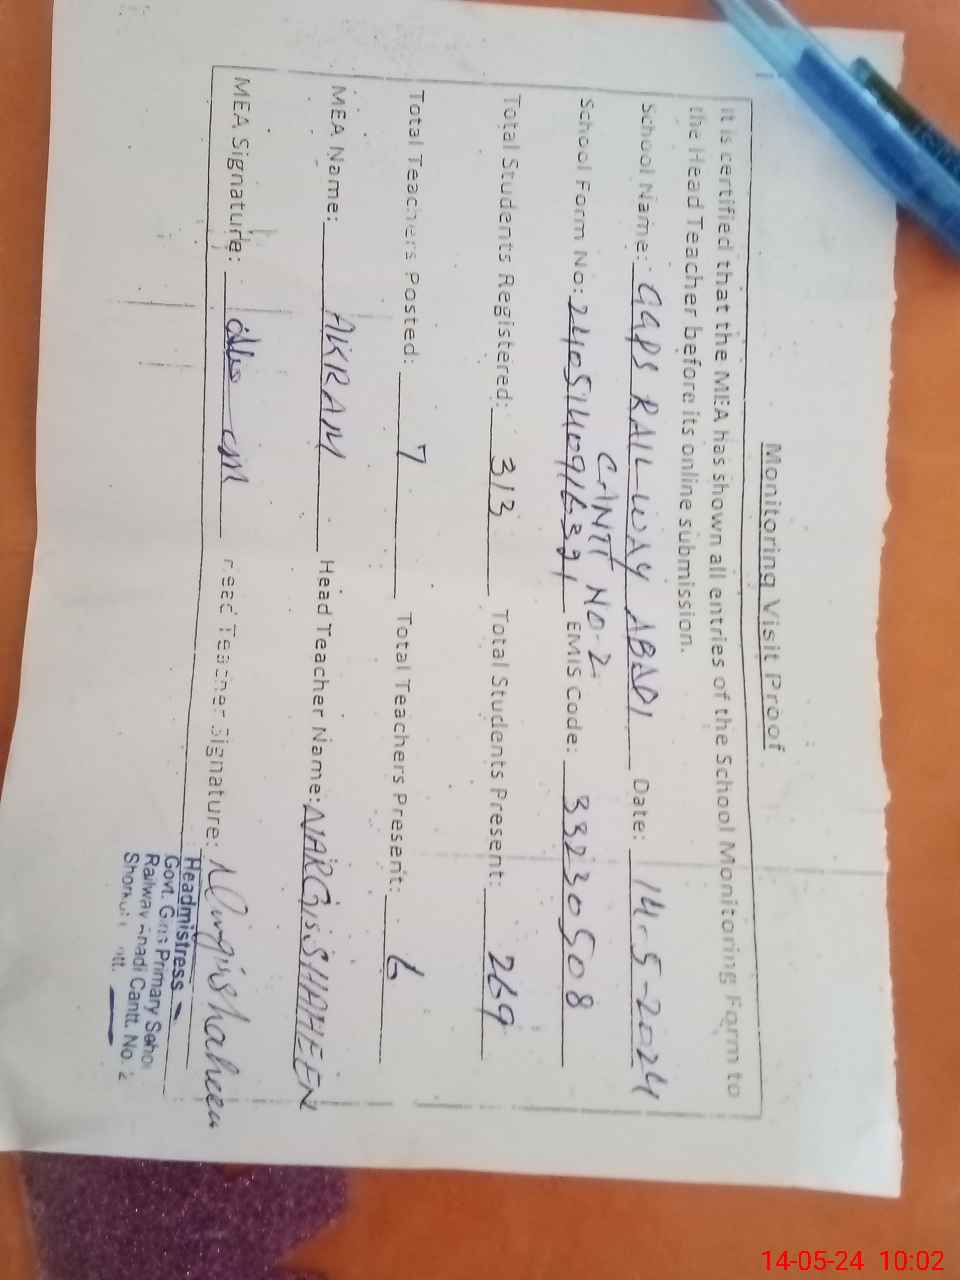 Monitoring Visit Proof
It is certified that the MEA has shown all entries of the School Monitoring Form to
the Head Teacher before its online submission.
School Name: GGPS RAILWAY ABADI Date: 14-5-2024
CANTT NO-2
School Form No: EMIS Code: 33230508
Total Students Registered: 313 Total Students Present: 269
Total Teachers Posted: 7 Total Teachers Present: 6
MEA Name: AKRAM Head Teacher Name: NARGIS SHAHEEN
MEA Signature: Head Teacher Signature: Nargis Shaheen
Headmistress
Govt. Girls Primary School
Railway Abadi Cantt. No. 2
14-05-24 10:02